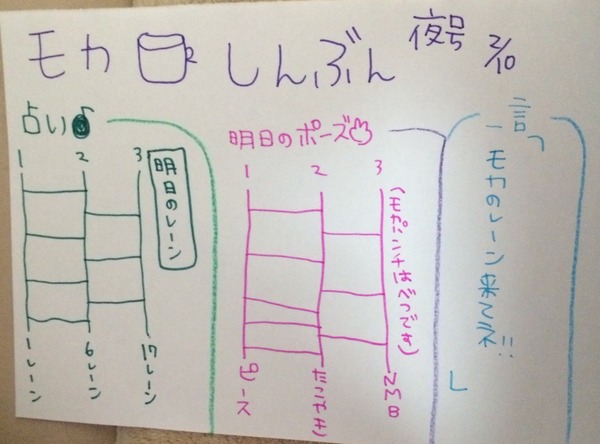 モカ しんぶん 夜号 2/10
占い
1 2 3
明日のレーン
1レーン
6レーン
17レーン
明日のポーズ
1 2 3
ピース
一言
「モカのレーン来てネ!!」